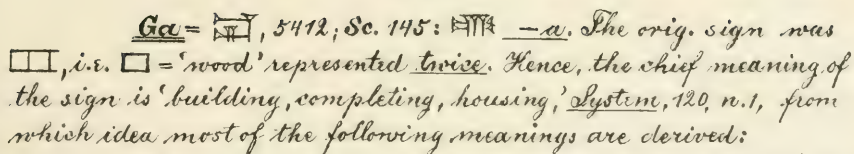 Ga = 𒂷, 5412; Sc. 145: 𒂷 —a. The orig. sign was
, i.e. = 'wood' represented twice. Hence, the chief meaning of
the sign is 'building, completing, housing,' System, 120, n. 1, from
which idea most of the following meanings are derived: